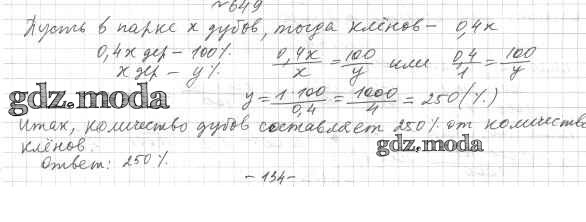 №649
Пусть в парке x дубов, тогда клёнов - 0,4x
0,4x дер - 100% 0,4x/x = 100/y или 0,4/1 = 100/y
x дер - y%
y = 1·100/0,4 = 1000/4 = 250(%)
gdz.moda
Итак, количество дубов составляет 250% от количества
клёнов.
gdz.moda
Ответ: 250%.
-134-